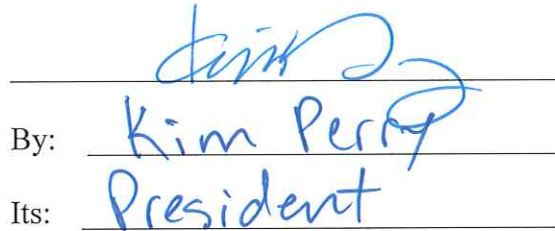 By: Kim Perry
Its: President